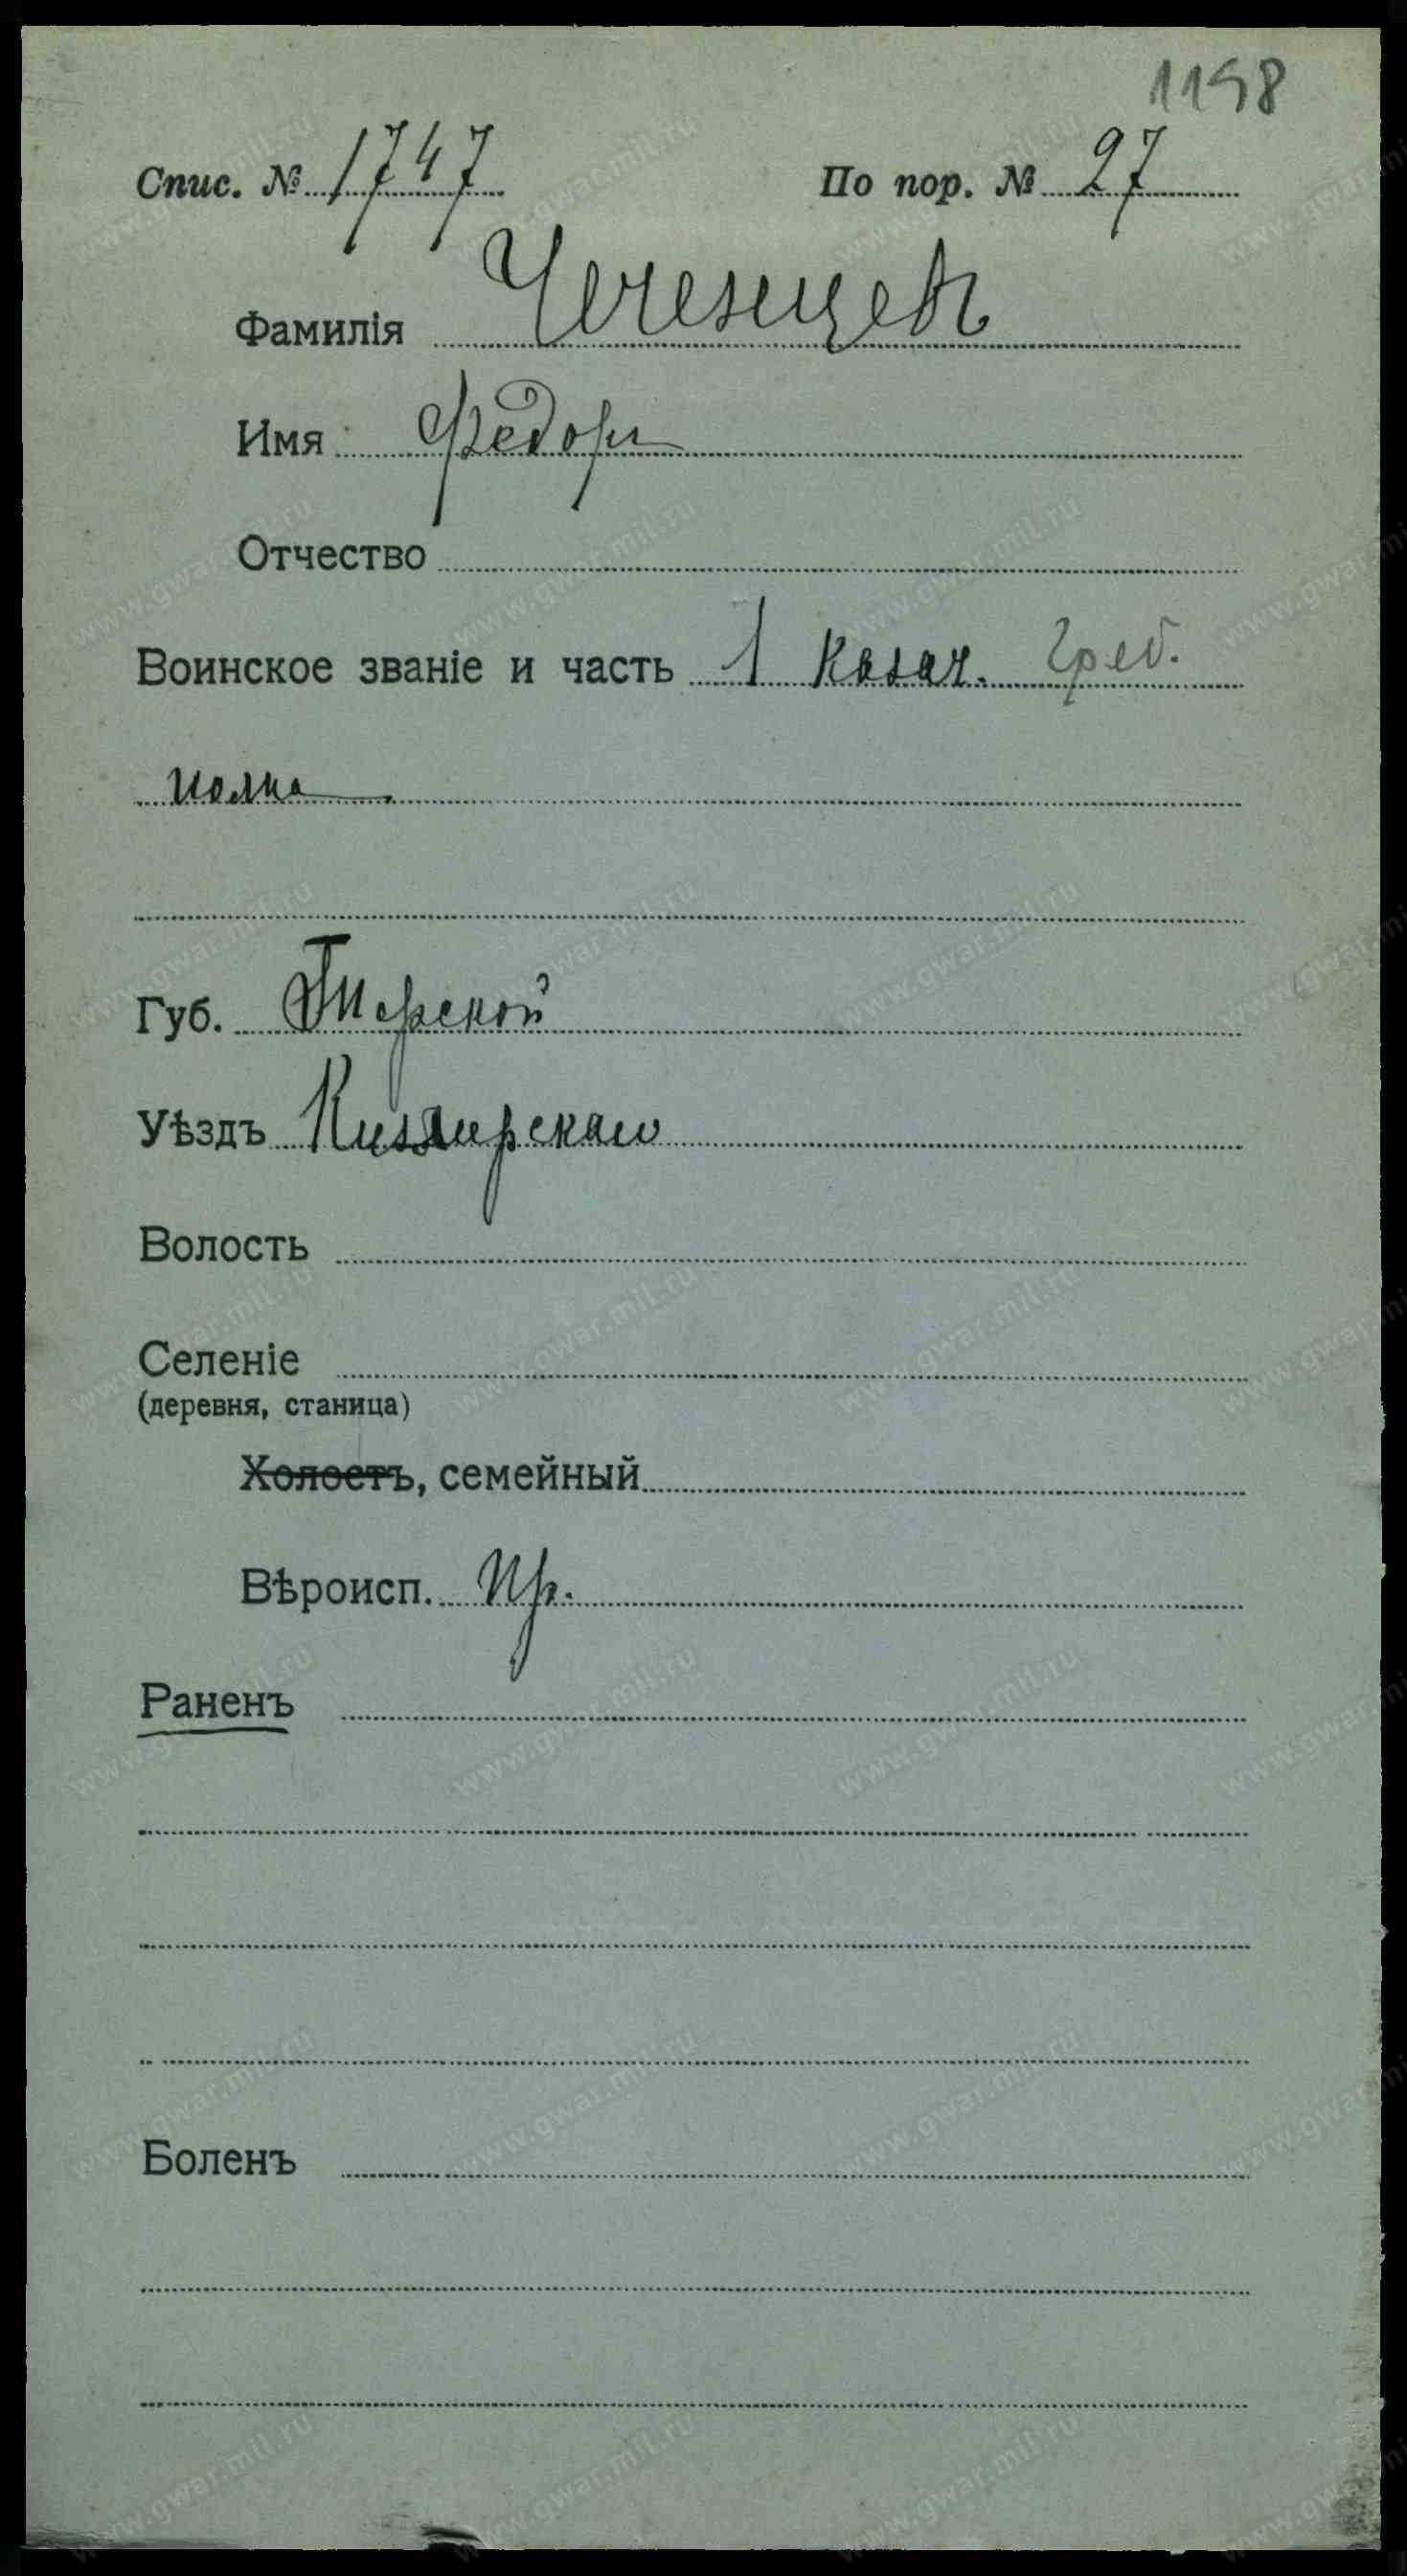 1198
Спис. № 1747 По пор. № 27
Фамилія Чеченцев
Имя Федоръ
Отчество
Воинское званіе и часть 1 казач. Греб.
полка
Губ. Терской
Уѣздъ Кизлярскаго
Волость
Селеніе
(деревня, станица)
Холостъ, семейный
Вѣроисп. Пр.
Раненъ
Боленъ
www.gwar.mil.ru